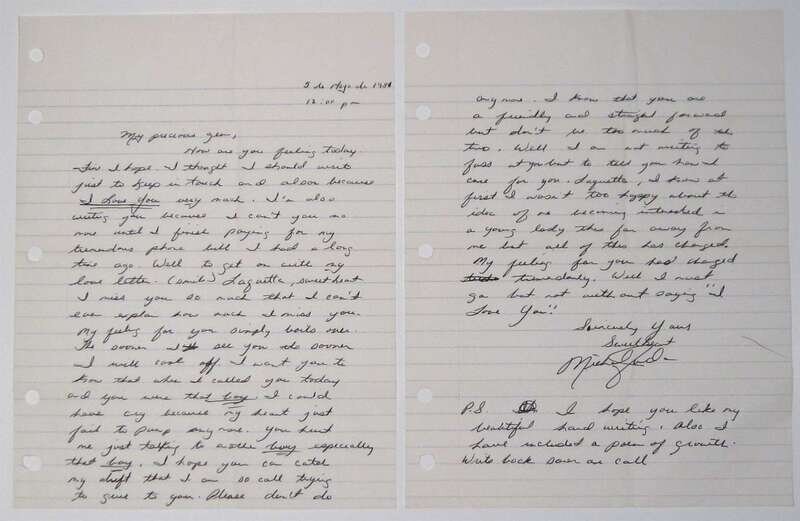 5 de Mayo de 1981
12:00 pm
My precious gem,
How are you feeling today.
Fine I hope. I thought I should write
just to keep in touch and alson because
I Love You very much. I'm also
writing you because I can't you no
more until I finish paying for my
tremendous phone bill I had a long
time ago. Well to get on with my
love letter. (smile) Laquetta, sweetheart
I miss you so much that I can't
even explain how much I miss you.
My feeling for you simply boils over.
The sooner I see you the sooner
I will cool off. I want you to
know that when I called you today
and you were that boy I could
have cry because my heart just
fail to pump any more. You hurt
me just talking to another boy especially
that boy. I hope you can catch
my drift that I am so call trying
to give to you. Please don't do
any more. I know that you are
a friendly and straight forward
but don't be too much of the
two. Well I am not writing to
fuss at you but to tell you how I
care for you. Laquetta, I know at
first I wasn't too happy about the
idea of me becoming interested in
a young lady this far away from
me but all of this has changed.
My feeling for you has changed
tremendously. Well I must
go but not without saying "I
Love You"
Sincerely Yours
Sweetheart
P.S. I hope you like my
beautiful hand writing. Also I
have included a poem of growth.
Write back soon or call